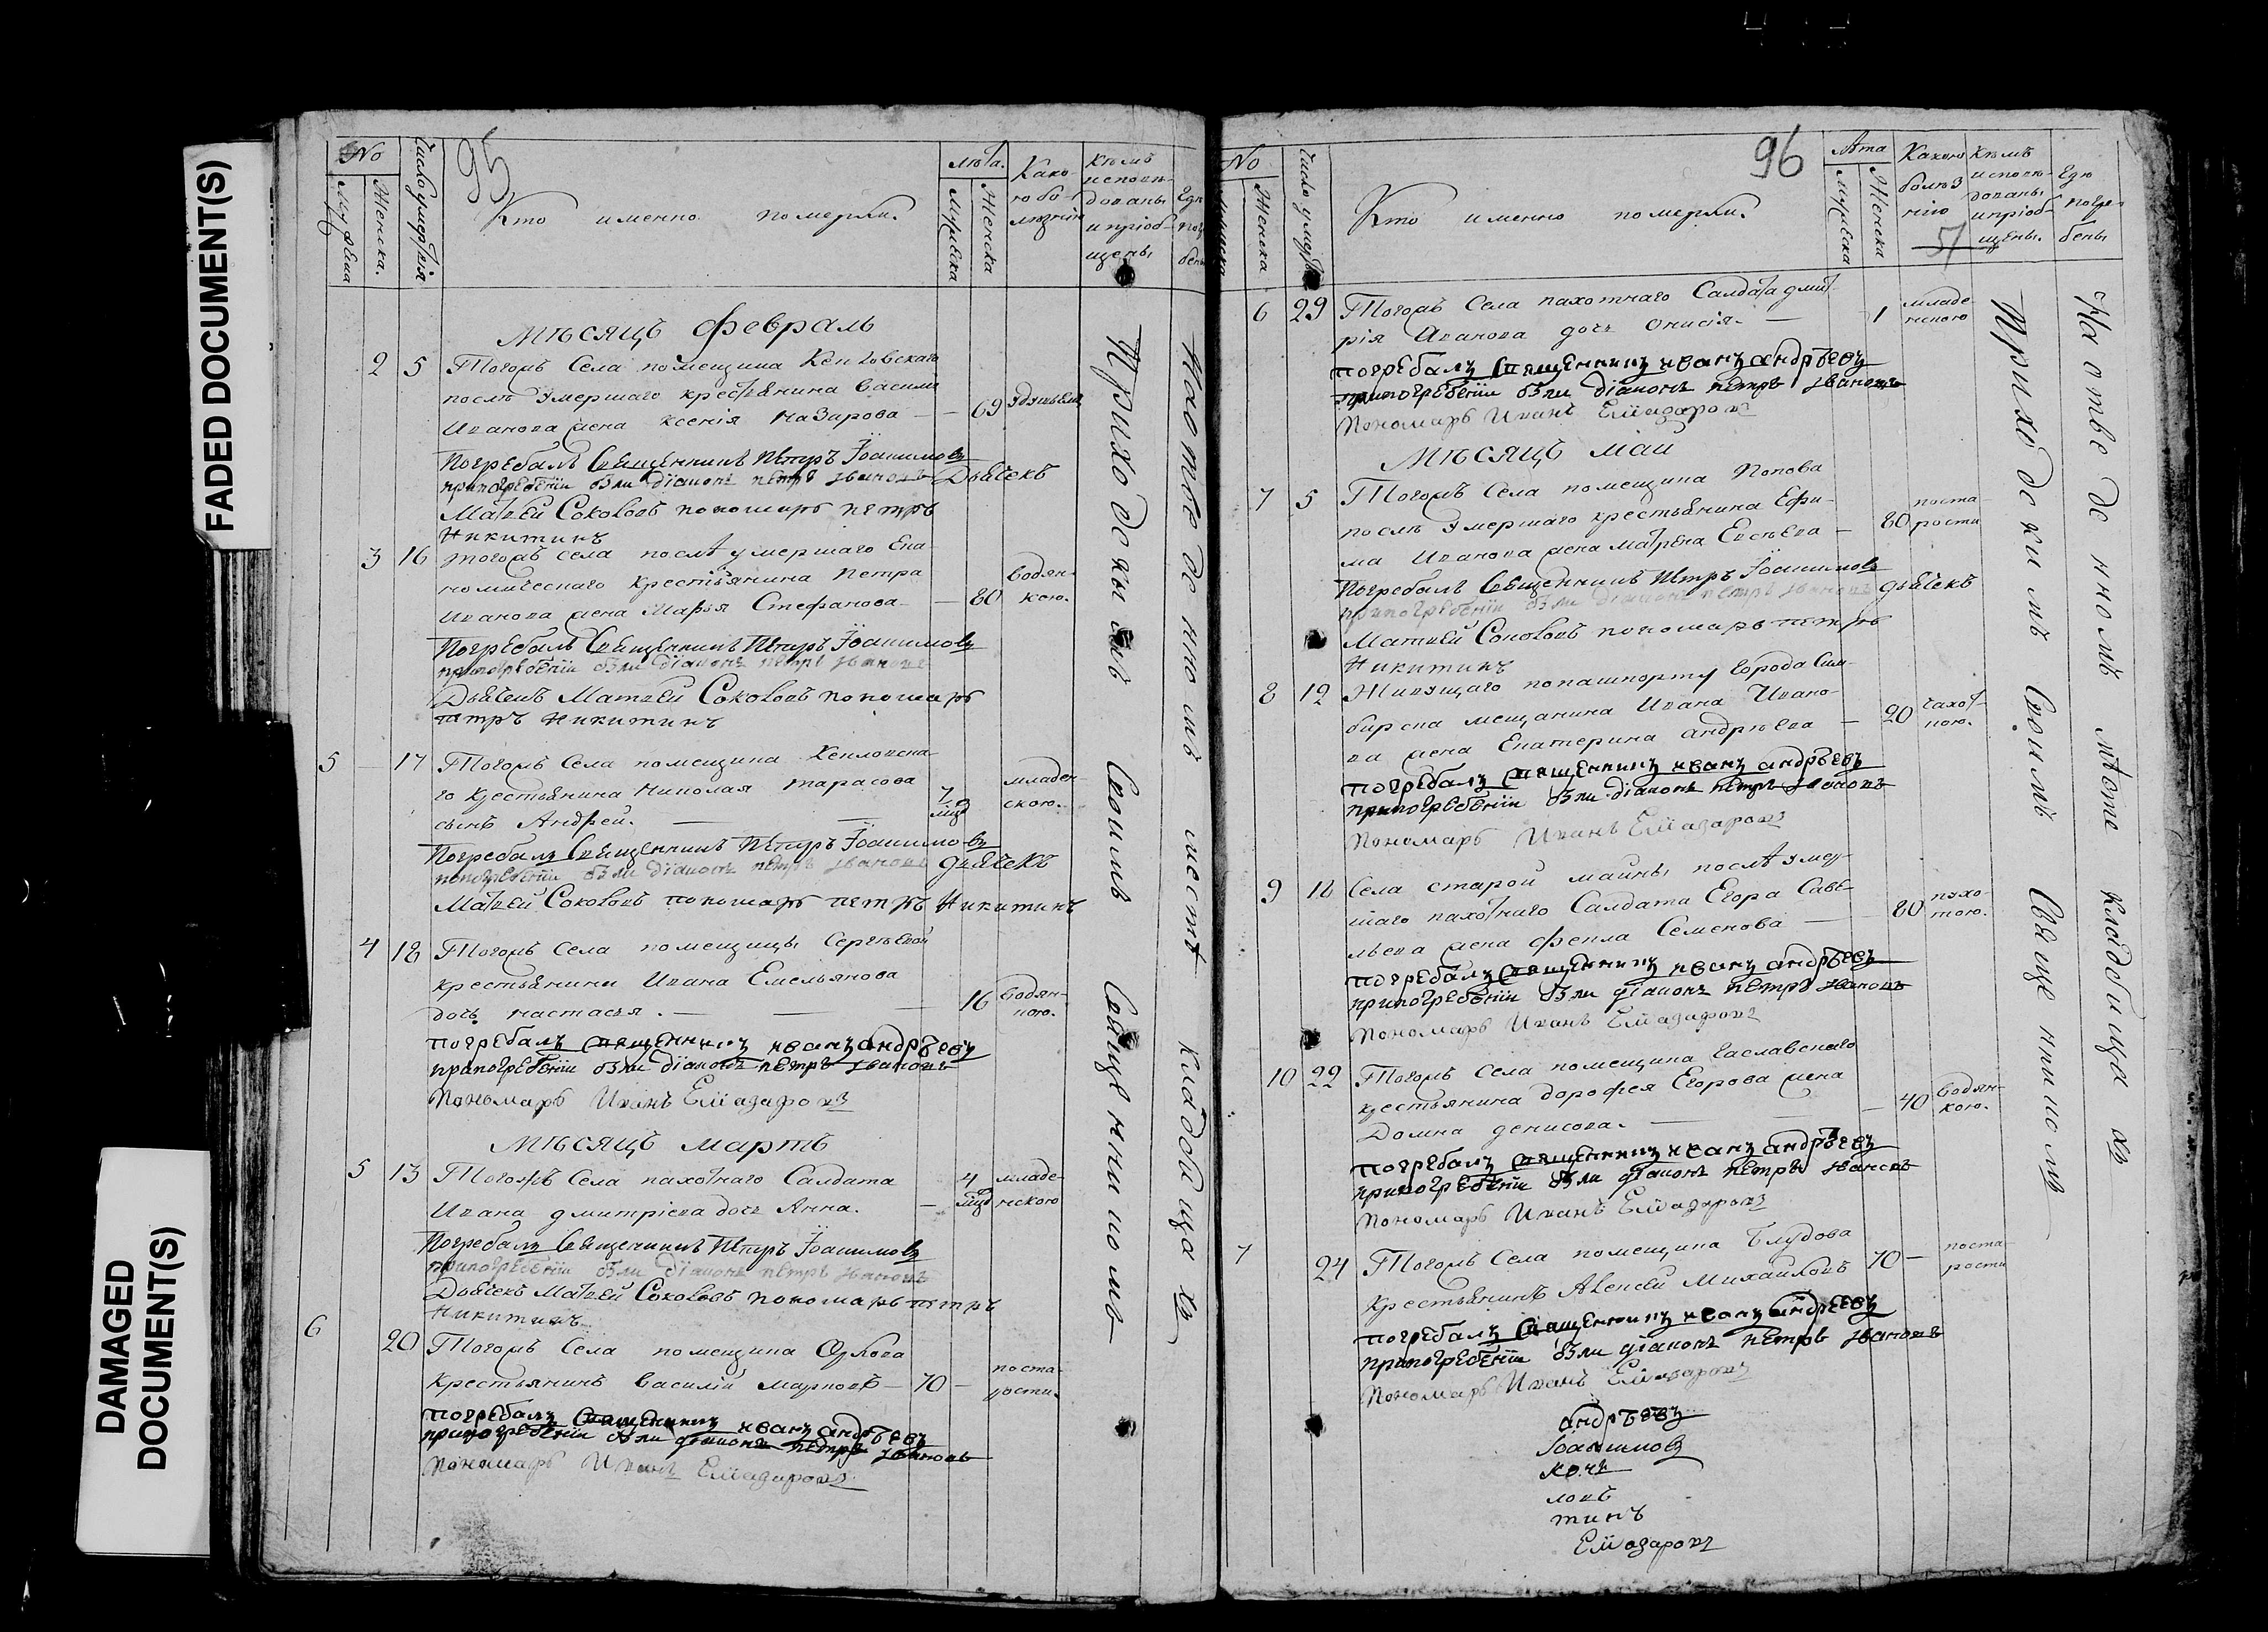 FADED DOCUMENT(S)
DAMAGED
DOCUMENT(S)
95
No
Мужеска
Женска.
Число умертвія
Кто именно померли.
лѣта.
Мужеска
Женска
Како
го бо
лѣзнію
Кѣмъ
исповѣ-
дованы
и пріоб-
щены
Гдѣ
Мѣсяцъ февраль
2 5 Тогожъ Села помещика
послѣ умершаго крестьянина Василья
Иванова жена Ксенія Назарова — 69
Погребалъ Священникъ Петръ Іоакимовъ
при погребеніи были діаконъ петръ ивановъ Дьячекъ
Матвей Соколовъ пономарь петръ
Никитинъ
3 16 тогожъ села послѣ умершаго Еко
номическаго крестьянина Петра
Иванова жена Марѳа Стефанова — 80
водян-
кою.
Погребалъ Священникъ Петръ Іоакимовъ
при погребеніи были діаконъ петръ ивановъ
Дьячекъ Матвей Соколовъ пономарь
петръ Никитинъ
5 — 17 Тогожъ Села помещика
го крестьянина Николая тарасова
сынъ Андрей. — —
младен-
скою.
Погребалъ Священникъ Петръ Іоакимовъ
при погребеніи были діаконъ петръ ивановъ дьячекъ
Матвей Соколовъ пономарь петръ Никитинъ
4 18 Тогожъ Села помещицы Сергѣевой
крестьянина Ивана Емельянова
дочь настасья. — — — 16
водян-
кою.
погребалъ священникъ иванъ андрѣевъ
при погребеніи были діаконъ петръ ивановъ
Пономарь Иванъ
Мѣсяцъ мартъ
5 13 Тогожъ Села пахотнаго Салдата
Ивана дмитріева дочь Анна. — 4
младе-
нскою
Погребалъ Священникъ Петръ Іоакимовъ
при погребеніи были діаконъ петръ ивановъ
Дьячекъ Матвей Соколовъ пономарь петръ
Никитинъ
6 20 Тогожъ Села помещика
Крестьянинъ Василій Марковъ — 70 —
поста-
рости.
погребалъ священникъ иванъ андрѣевъ
при погребеніи были діаконъ петръ ивановъ
Пономарь Иванъ
Приходскимъ Своимъ Священникомъ
На отведенномъ месте кладбища хъ
96
No
Женска
Число умер
Кто именно померли.
Лѣта
Мужеска
Женска
Какою
болѣз
нію
51
Кѣмъ
исповѣ-
дованы
и пріоб-
щены.
Гдѣ
погре-
бены
6 29 Тогожъ Села пахотнаго Салдата дмит-
рія Иванова дочь Анисія. — 1
младе-
нскою
погребалъ священникъ иванъ андрѣевъ
при погребеніи были діаконъ петръ ивановъ
Пономарь Иванъ
Мѣсяцъ май
7 5 Тогожъ Села помещика Попова
послѣ умершаго крестьянина Ефи-
ма Иванова жена Матрена Евсѣева — 80
поста-
рости
Погребалъ Священникъ Петръ Іоакимовъ
при погребеніи были діаконъ петръ ивановъ дьячекъ
Матвей Соколовъ пономарь петръ
Никитинъ
8 12 Живущаго попашпорту города Сим-
бирска мещанина Ивана Ивано-
ва жена Екатерина андрѣева — 20
чахот-
кою.
погребалъ священникъ иванъ андрѣевъ
при погребеніи были діаконъ петръ ивановъ
Пономарь Иванъ
9 18 Села старой майны послѣ умер-
шаго пахотнаго Салдата Егора Саве-
льева жена фекла Семенова — 80
погребалъ священникъ иванъ андрѣевъ
при погребеніи были діаконъ петръ ивановъ
Пономарь Иванъ
10 22 Тогожъ Села помещика
крестьянина дорофея Егорова жена
Домна денисова. — — 40
водян-
кою.
погребалъ священникъ иванъ андрѣевъ
при погребеніи были діаконъ петръ ивановъ
Пономарь Иванъ
7 24 Тогожъ Села помещика Блудова
крестьянинъ Алексей Михайловъ 70 —
поста-
рости
погребалъ священникъ иванъ андрѣевъ
при погребеніи были діаконъ петръ ивановъ
Пономарь Иванъ
андрѣевъ
Іоакимовъ
ловъ
тинъ
Приходскимъ Своимъ Священникомъ
На отведенномъ месте кладбища хъ